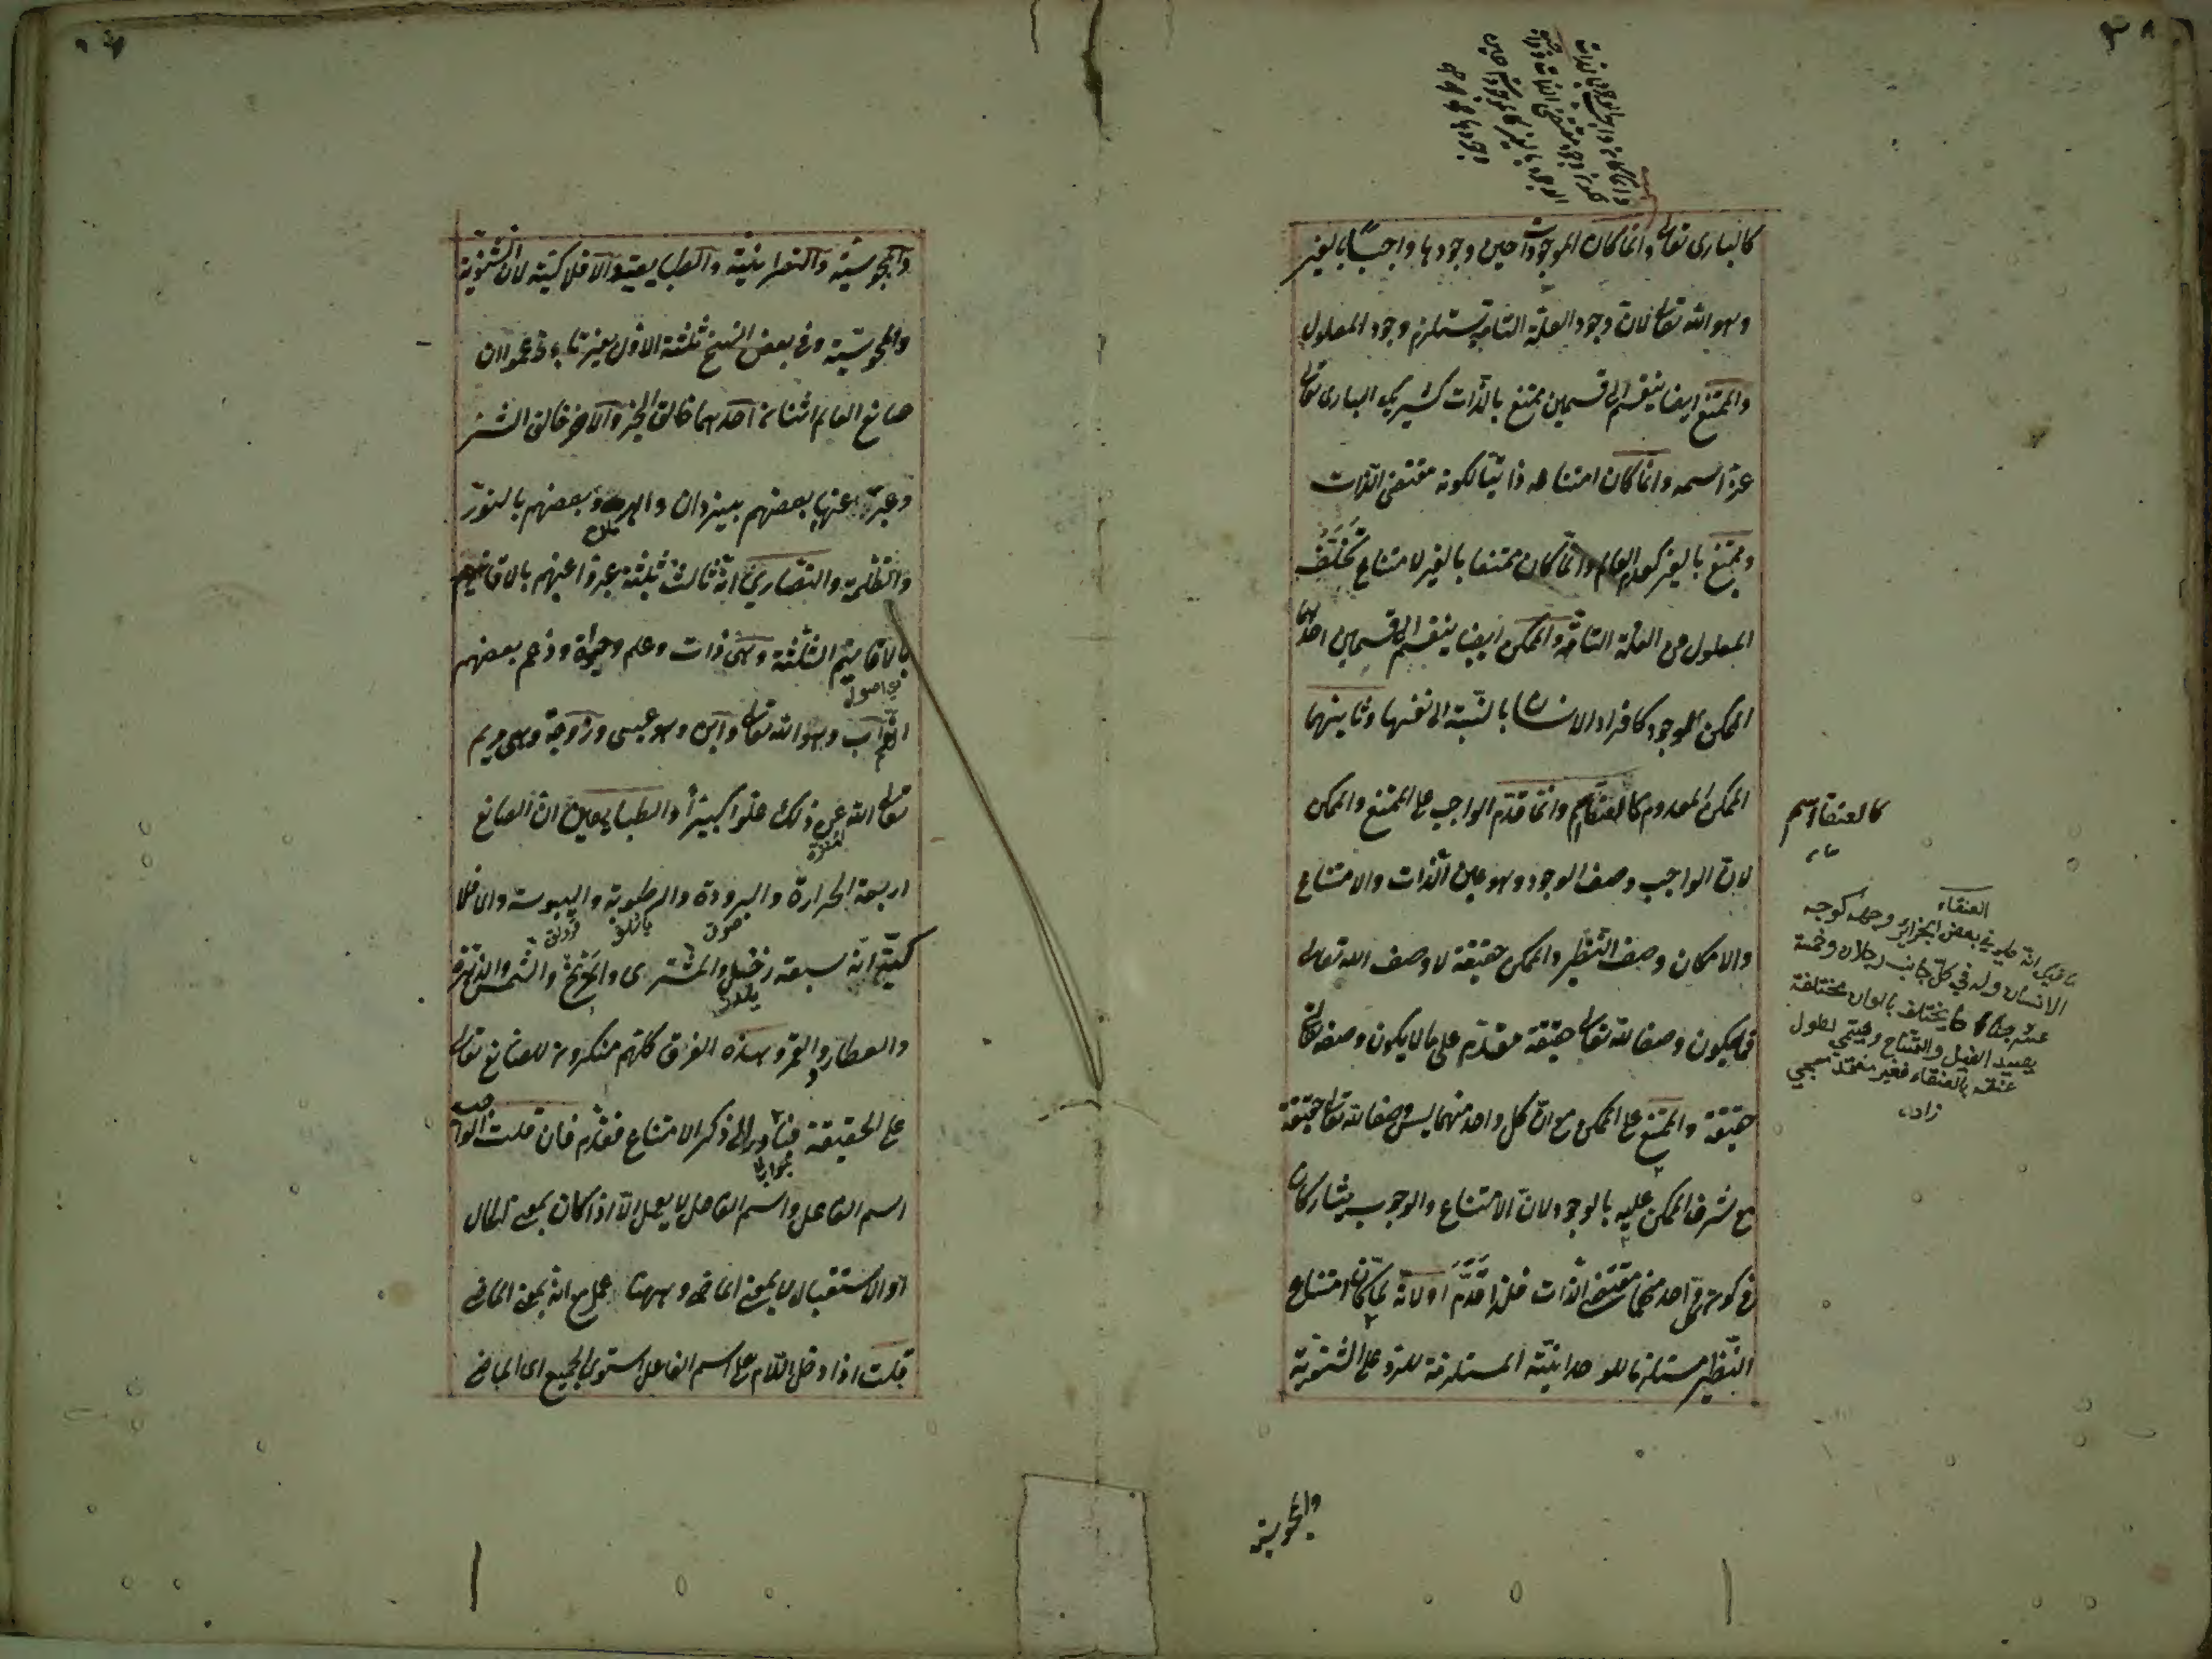 كالبارى تعالى وانما كان الموجودات حين وجودها واجبا بالغير
وهو الله تعالى لان وجود العلة التامة يستلزم وجود المعلول
والممتنع ايضا ينقسم الى قسمين ممتنع بالذات كشريك البارى تعالى
عز اسمه وانما كان امتناعه ذاتيا لكونه مقتضى الذات
وممتنع بالغير كعدم العالم وانما كان ممتنعا بالغير لامتناع تخلف
المعلول عن العلة التامة والممكن ايضا ينقسم الى قسمين احدهما
الممكن الموجود كافراد الانسان بالنسبة الى نفسها وثانيهما
الممكن المعدوم كالعنقاء وانما قدم الواجب على الممتنع والممكن
لان الواجب وصف الوجود وهو عين الذات والامتناع
والامكان وصف النظير والممكن حقيقة لا وصف الله تعالى
فما يكون وصفا لله تعالى حقيقة مقدم على ما لا يكون وصفه تعالى
حقيقة والممتنع على الممكن مع ان كل واحد منهما ليس وصفا لله تعالى حقيقة
مع شرف الممكن عليه بالوجود لان الامتناع والوجوب يتشاركان
فى كون كل واحد منهما مقتضى الذات فلذا قدم اولانه لما كان امتناع
النظير مستلزما للوحدانية المستلزمة للرد على الثنوية
كالعنقاء اسم
العنقاء
قيل انه طير في بعض الجزائر وجهه كوجه
الانسان وله في كل جانب رجلان وخمسة
يختلف بالوان مختلفة
يصيد الفيل والتمساح وسمي لطول
عنقه بالعنقاء
زاده
والمجوسية
والمجوسية والنصرانية والطبايعية والافلاكية لان الثنوية
والمجوسية وفى بعض النسخ ثلثة الاول بغير تاء زعموا ان
صانع العالم اثنان احدهما خالق الخير والاخر خالق الشر
وعبر عنهما بعضهم بيزدان واهرمن وبعضهم بالنور
والظلمة والنصارى انه ثالث ثلثة عبروا عنهم بالاقانيم
بالاقانيم الثلثة وهى ذات وعلم وحيوة وزعم بعضهم
اى اصول
انهم اب وهو الله تعالى وابن وهو عيسى وزوجة وهى مريم
تعالى الله عن ذلك علوا كبيرا والطبايعيين ان الصانع
اربعة الحرارة والبرودة والرطوبة واليبوسة والافلا
كية انه سبعة زحل والمشترى والمريخ والشمس والزهرة
والعطارد والقمر وهذه الفرق كلهم منكرون للصانع تعالى
على الحقيقة فتبادر الى ذكر الامتناع فقدم فان قلت الواجب
اسم الفاعل واسم الفاعل لا يعمل الا اذا كان بمعنى الحال
او الاستقبال لا بمعنى الماضى وههنا عمل مع انه بمعنى الماضى
قلت اذا دخل اللام على اسم الفاعل استوى الجميع اى الماضى